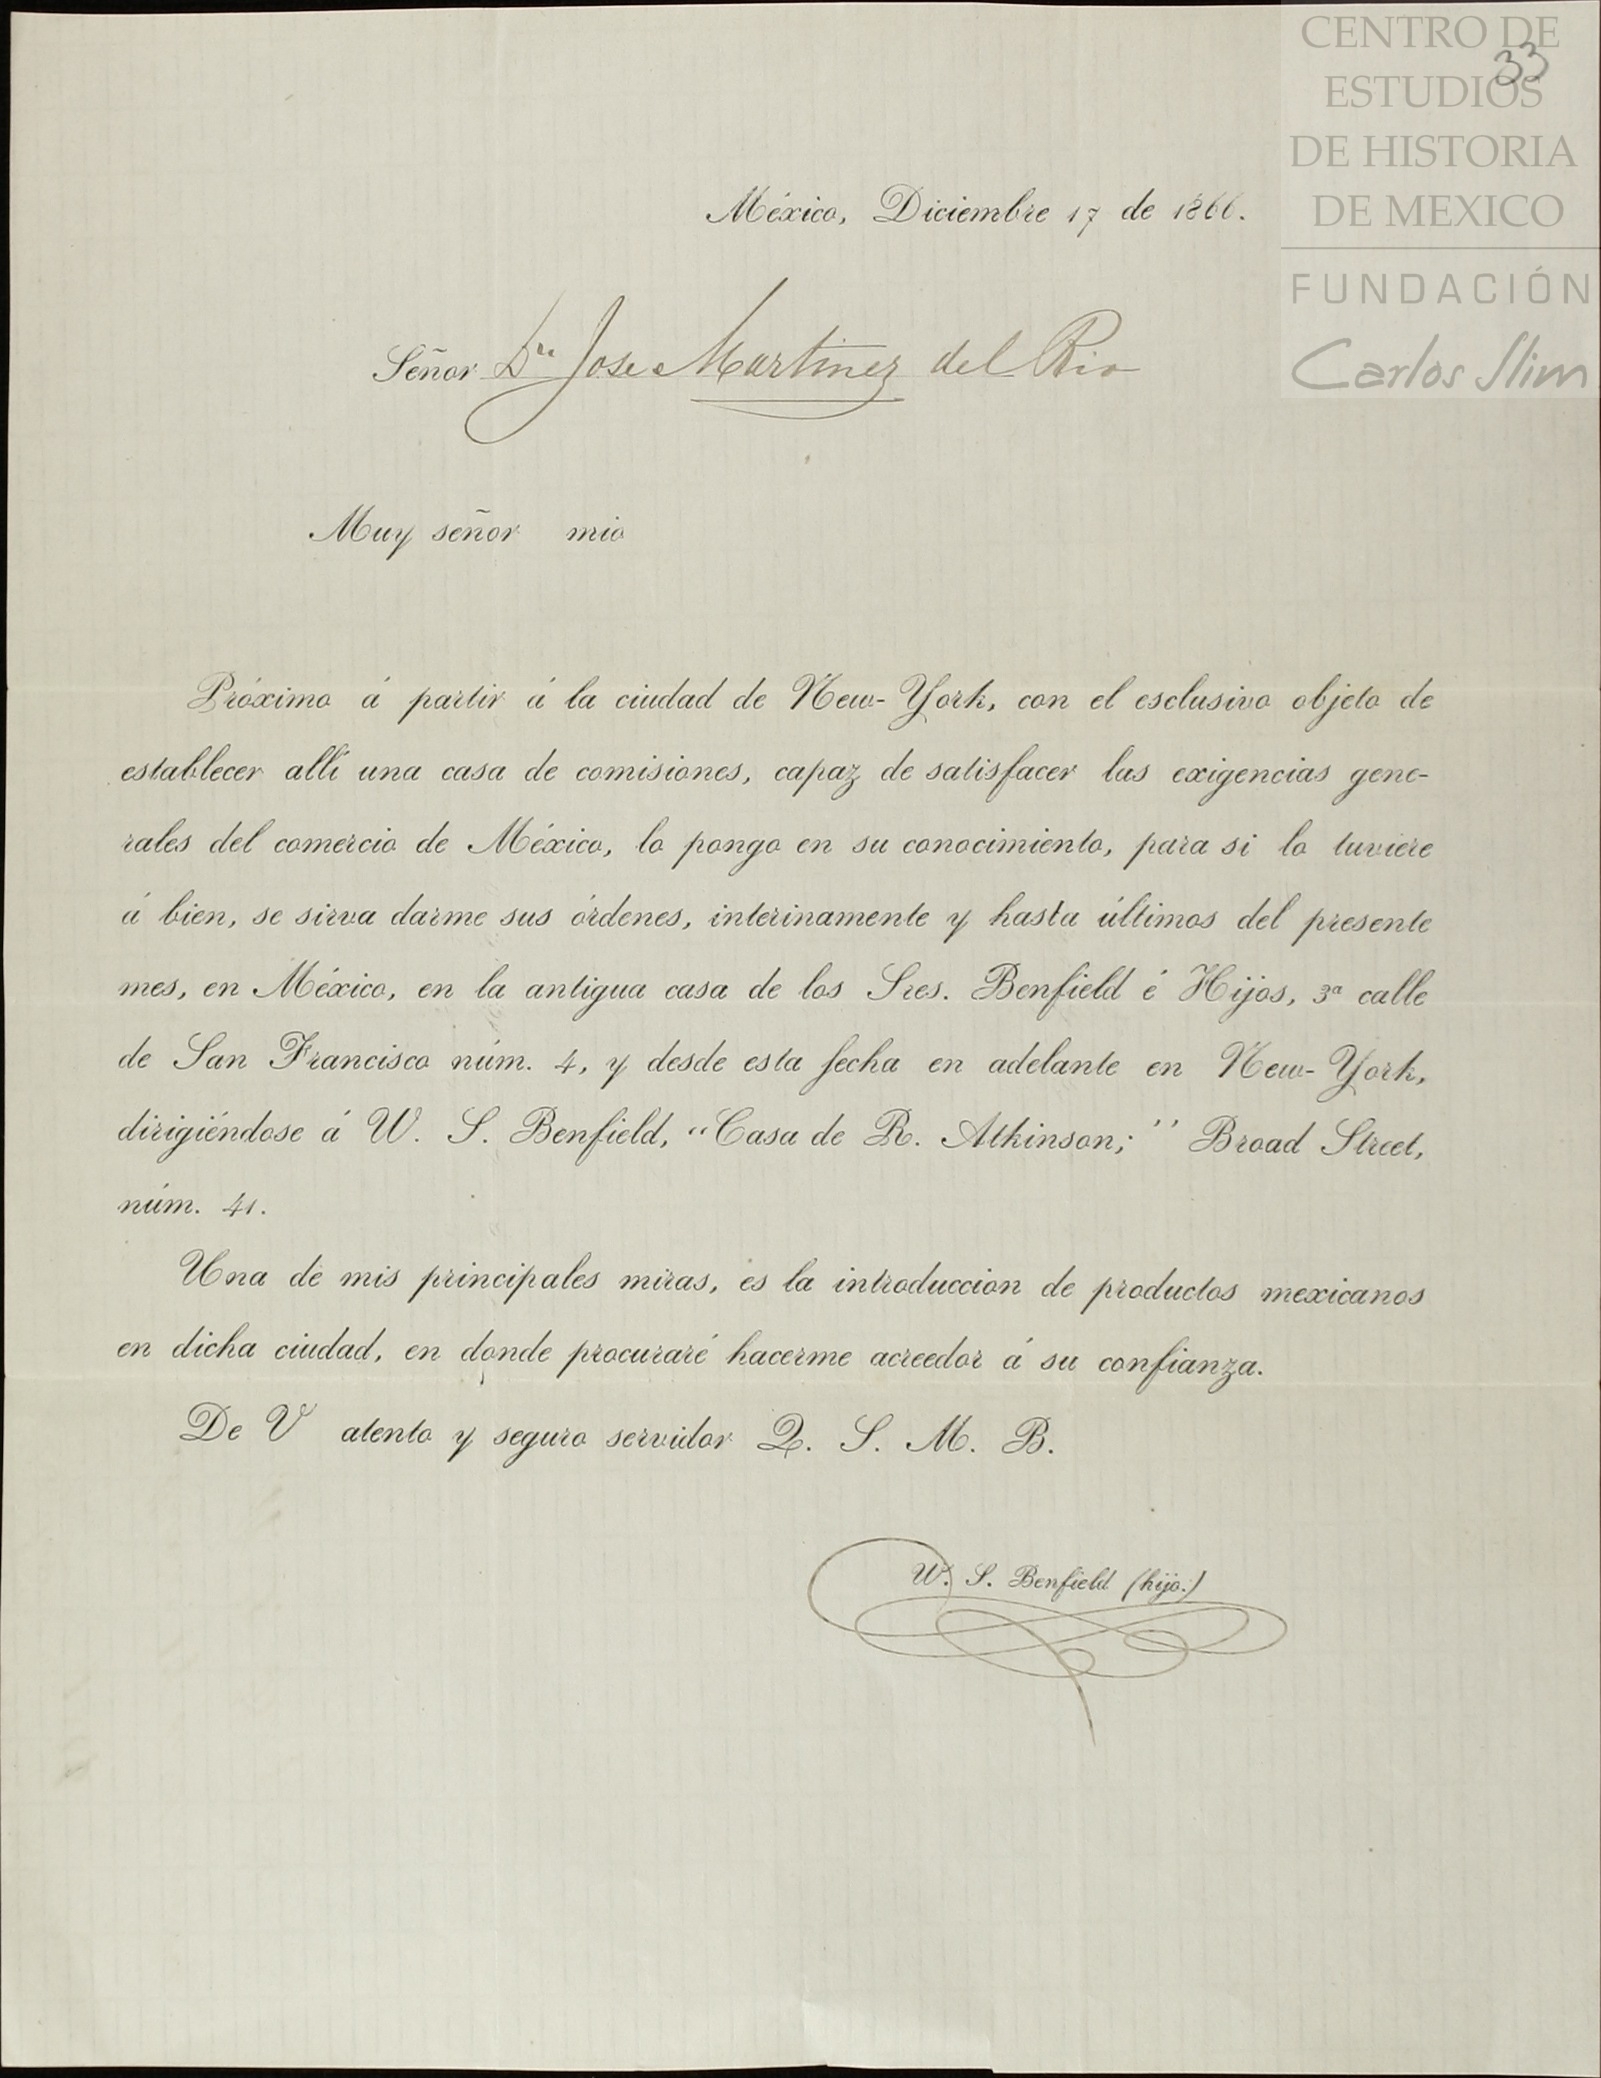 CENTRO DE
ESTUDIOS
DE HISTORIA
DE MEXICO
FUNDACIÓN
Carlos Slim
33
México, Diciembre 17 de 1866.
Señor Dn Jose Martinez del Rio
Muy señor mio
Próximo á partir á la ciudad de New-York, con el esclusivo objeto de
establecer allí una casa de comisiones, capaz de satisfacer las exigencias gene-
rales del comercio de México, lo pongo en su conocimiento, para si lo tuviere
á bien, se sirva darme sus órdenes, interinamente y hasta últimos del presente
mes, en México, en la antigua casa de los Sres. Benfield é Hijos, 3ª calle
de San Francisco núm. 4, y desde esta fecha en adelante en New-York,
dirigiéndose á W. S. Benfield, "Casa de R. Atkinson;" Broad Street,
núm. 41.
Una de mis principales miras, es la introduccion de productos mexicanos
en dicha ciudad, en donde procuraré hacerme acreedor á su confianza.
De V atento y seguro servidor Q. S. M. B.
W. S. Benfield (hijo.)